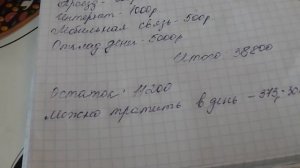 Проезд -
Интернет - 1000р.
Мобильная связь - 500р.
Отклад день - 5000р.
Итого - 38800
Остаток: 11200
Можно тратить в день - 373,30